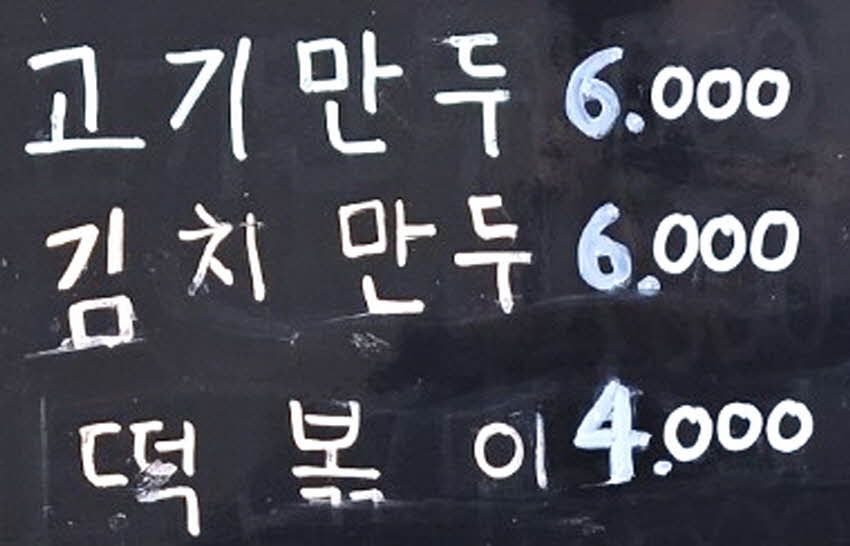 고기만두 6.000
김치 만두 6.000
떡 볶 이 4.000